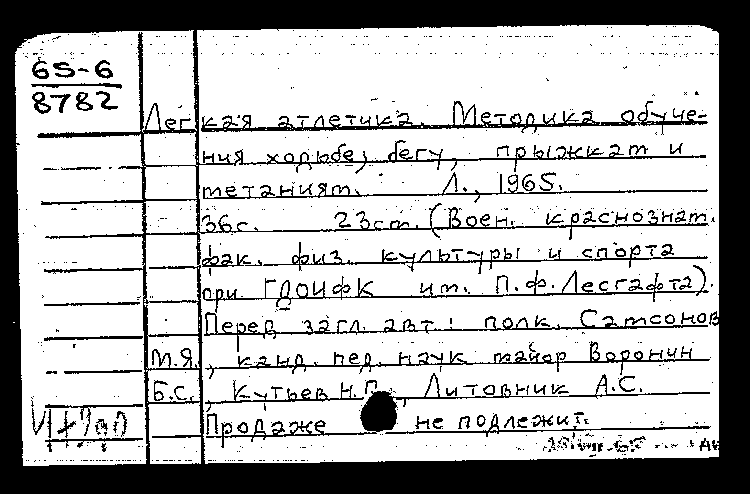 65-6
8782
Легкая атлетика. Методика обуче-
ния ходьбе, бегу, прыжкам и
метаниям. Л., 1965.
36с. 23см. (Воен. краснознам.
фак. физ. культуры и спорта
при ГДОИФК им. П.Ф.Лесгафта).
Перед загл. авт.: полк. Самсонов
М.Я., канд. пед. наук майор Воронин
Б.С., Кутьев Н. , Литовник А.С.
Продаже не подлежит.